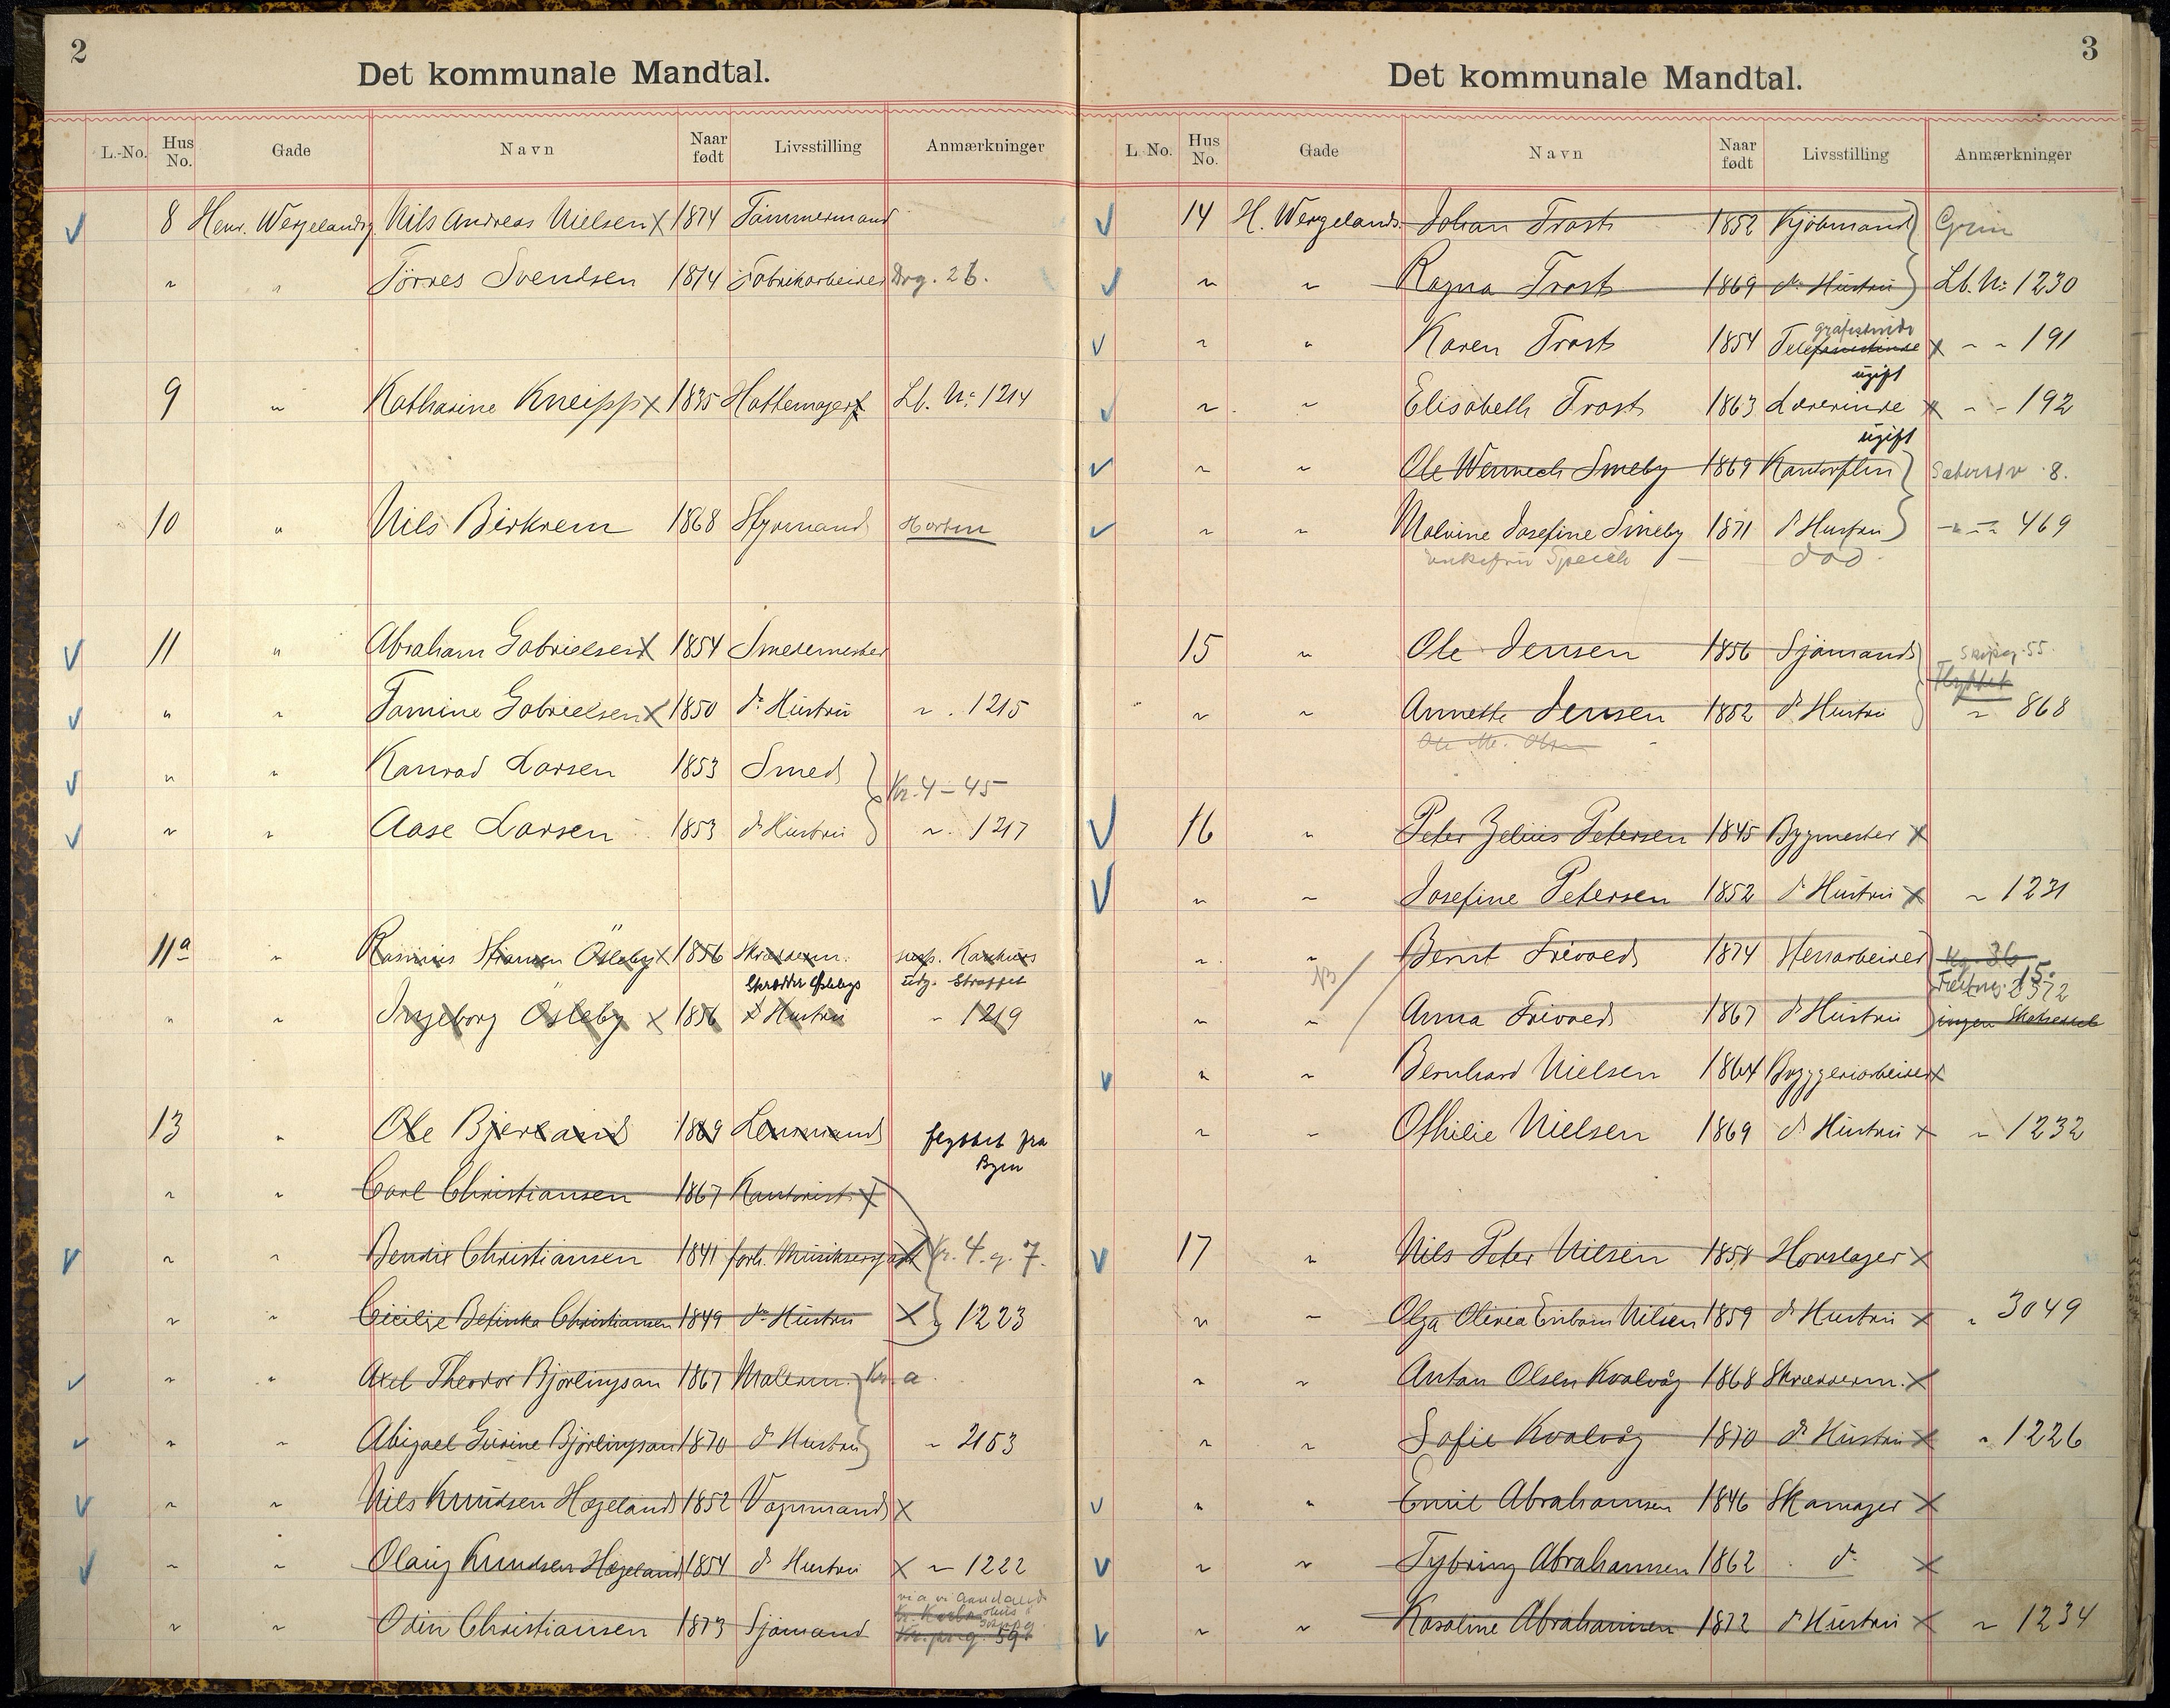 2
Det kommunale Mandtal.
L.-No. Hus No. Gade Navn Naar født Livsstilling Anmærkninger
8 Henr. Wergelandsg. Nils Andreas Nielsen X 1874 Tömmermand
" " Törres Svendsen 1874 Fabrikarbeider Drg. 26.
9 " Katharine Kneipp X 1835 Hattemager Lb. No 1214
10 " Nils Birkrem 1868 Styrmand Horten
11 " Abraham Gabrielsen X 1854 Smedemester
" " Tomine Gabrielsen X 1850 ds Hustru " 1215
" " Konrad Larsen 1853 Smed Kr. 4 - 45
" " Aase Larsen 1853 ds Hustru " 1217
11a " Rasmus Hansen Ösleby X 1856 Skrædderm.
Skrædder udg. Strøget
" " Ingeborg Ösleby X 1856 ds Hustru " 1219
13 " Ole Bjerland 1869 Lensmand flyttet fra
Byen
" " Carl Christiansen 1867 Kontorist X
" " Bendix Christiansen 1841 forh. Musiksergeant X Kr. 4. g. 7.
" " Cicilie Betinka Christiansen 1849 ds Hustru X 1223
" " Axel Theodor Bjørlingson 1867 Malerm. Kr. a
" " Abigael Gurine Bjørlingson 1870 ds Hustru " 2153
" " Nils Knudsen Hægeland 1852 Vognmand X
" " Olaug Knudsen Hægeland 1854 ds Hustru X " 1222
" " Odin Christiansen 1873 Sjømand
59
3
Det kommunale Mandtal.
L. No. Hus No. Gade Navn Naar født Livsstilling Anmærkninger
14 H. Wergelands. Johan Trost 1852 Kjöbmand Grim
" " Ragna Trost 1869 ds Hustru Lb. No 1230
grafistinde
" " Karen Trost 1854 Telefonistinde X " " 191
ugift
" " Elisabeth Trost 1863 Lærerinde X " " 192
ugift
" " Ole Wennech Smeby 1869 Kontorflm 8.
" " Malvine Josefine Smeby 1871 ds Hustru " " 469
Enkefru død
15 " Ole Jensen 1856 Sjömand Skipsg. 55.
Flyttet
" " Annette Jensen 1852 ds Hustru " 868
Ole M. Olsen
16 " Peter Zelius Petersen 1845 Bygmester X
" " Josefine Petersen 1852 ds Hustru X " 1231
" " Bernt Trivoed 1874 Stenarbeider Kg. 36
15
2372
" " Anna Trivoed 1867 ds Hustru ingen Skatseddel
" " Bernhard Nielsen 1864 Bryggeriarbeider X
" " Othilie Nielsen 1869 ds Hustru X " 1232
17 " Nils Peter Nilsen 1858 Hovslager X
" " Olga Olivia Nilsen 1859 ds Hustru X " 3049
" " Anton Olsen Kvalvåg 1868 Skrædderm. X
" " Sofie Kvalvåg 1870 ds Hustru X " 1226
" " Emil Abrahamsen 1846 Skomager X
" " Tybring Abrahamsen 1862 do X
" " Rosaline Abrahamsen 1872 ds Hustru X " 1234